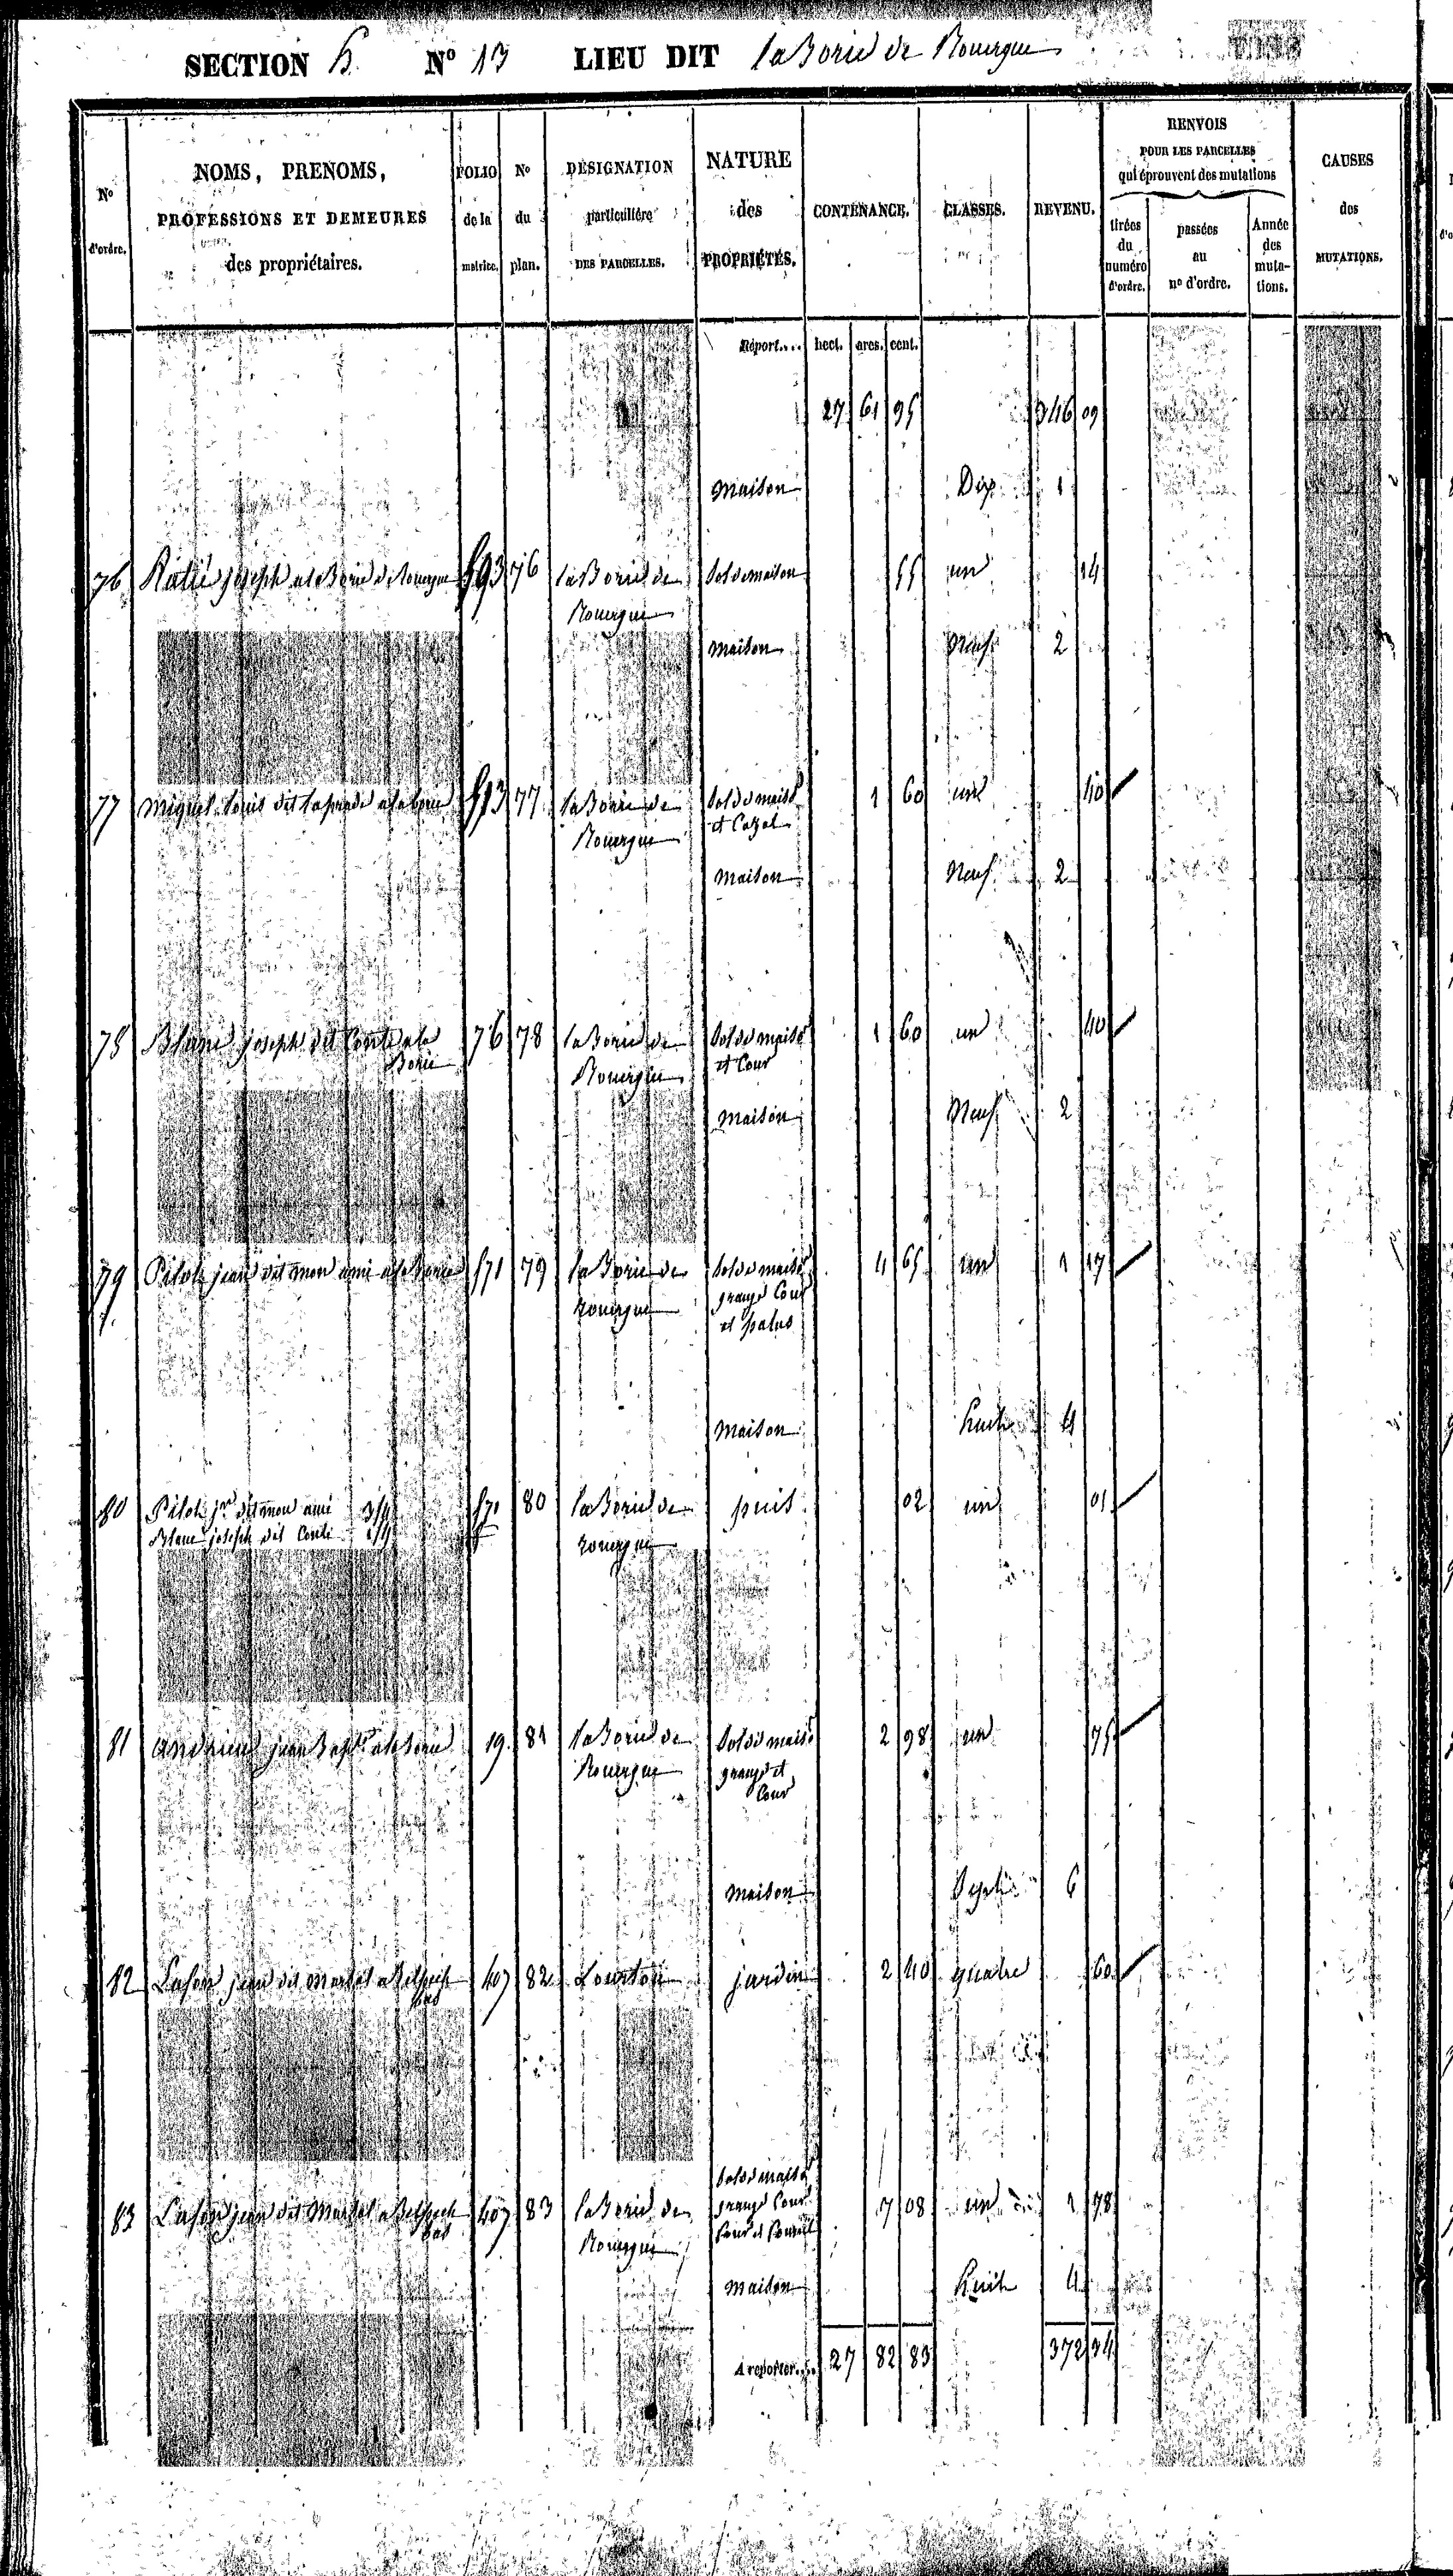 SECTION h. No 13 LIEU DIT la Borie de Rouergue
No d'ordre. NOMS, PRENOMS, PROFESSIONS ET DEMEURES des propriétaires. FOLIO de la matrice. No du plan. DÉSIGNATION particulière DES PARCELLES. NATURE des PROPRIÉTÉS. CONTENANCE. CLASSES. REVENU. RENVOIS POUR LES PARCELLES qui éprouvent des mutations tirées du numéro d'ordre. passées au no d'ordre. Année des mutations. CAUSES des MUTATIONS.
Réport.... hect. ares. cent.
27 61 95 346 09
maison Dix 1
76 Ratié joseph a la Borie de Rouergue 593 76 la Borie de Sol de maison 55 un 14
Rouergue
maison Neuf 2
77 Miquel Louis dit a la borie 513 77 la Borie de Sol de maison 1 60 un 40
Rouergue et Cazal
maison Neuf 2
78 Blanc joseph dit Conti a la 76 78 la Borie de Sol de maison 1 60 un 40
Borie Rouergue et Cour
maison Neuf 2
79 Pilot jean dit mon ami a la Borie 571 79 la Borie de Sol de maison 4 65 un 1 17
rouergue grange Cour
et patus
maison huit 4
80 Pilot jn dit mon ami 3/4 571 80 la Borie de puit 02 un 01
Blanc joseph dit Conti 1/4 rouergue
81 Andrieu jean Baptte a la Borie 19 81 la Borie de Sol de maison 2 98 un 75
Rouergue grange et
Cour
maison Sept 6
82 Lafon jean dit Martel a Belpech 407 82 jardin 2 40 quatre 60
bas
Sol de maison
83 Lafon jean dit Martel a Belpech 407 83 la Borie de grange Cour 7 08 un 1 78
bas Rouergue
maison huit 4
A reporter.... 27 82 83 372 34